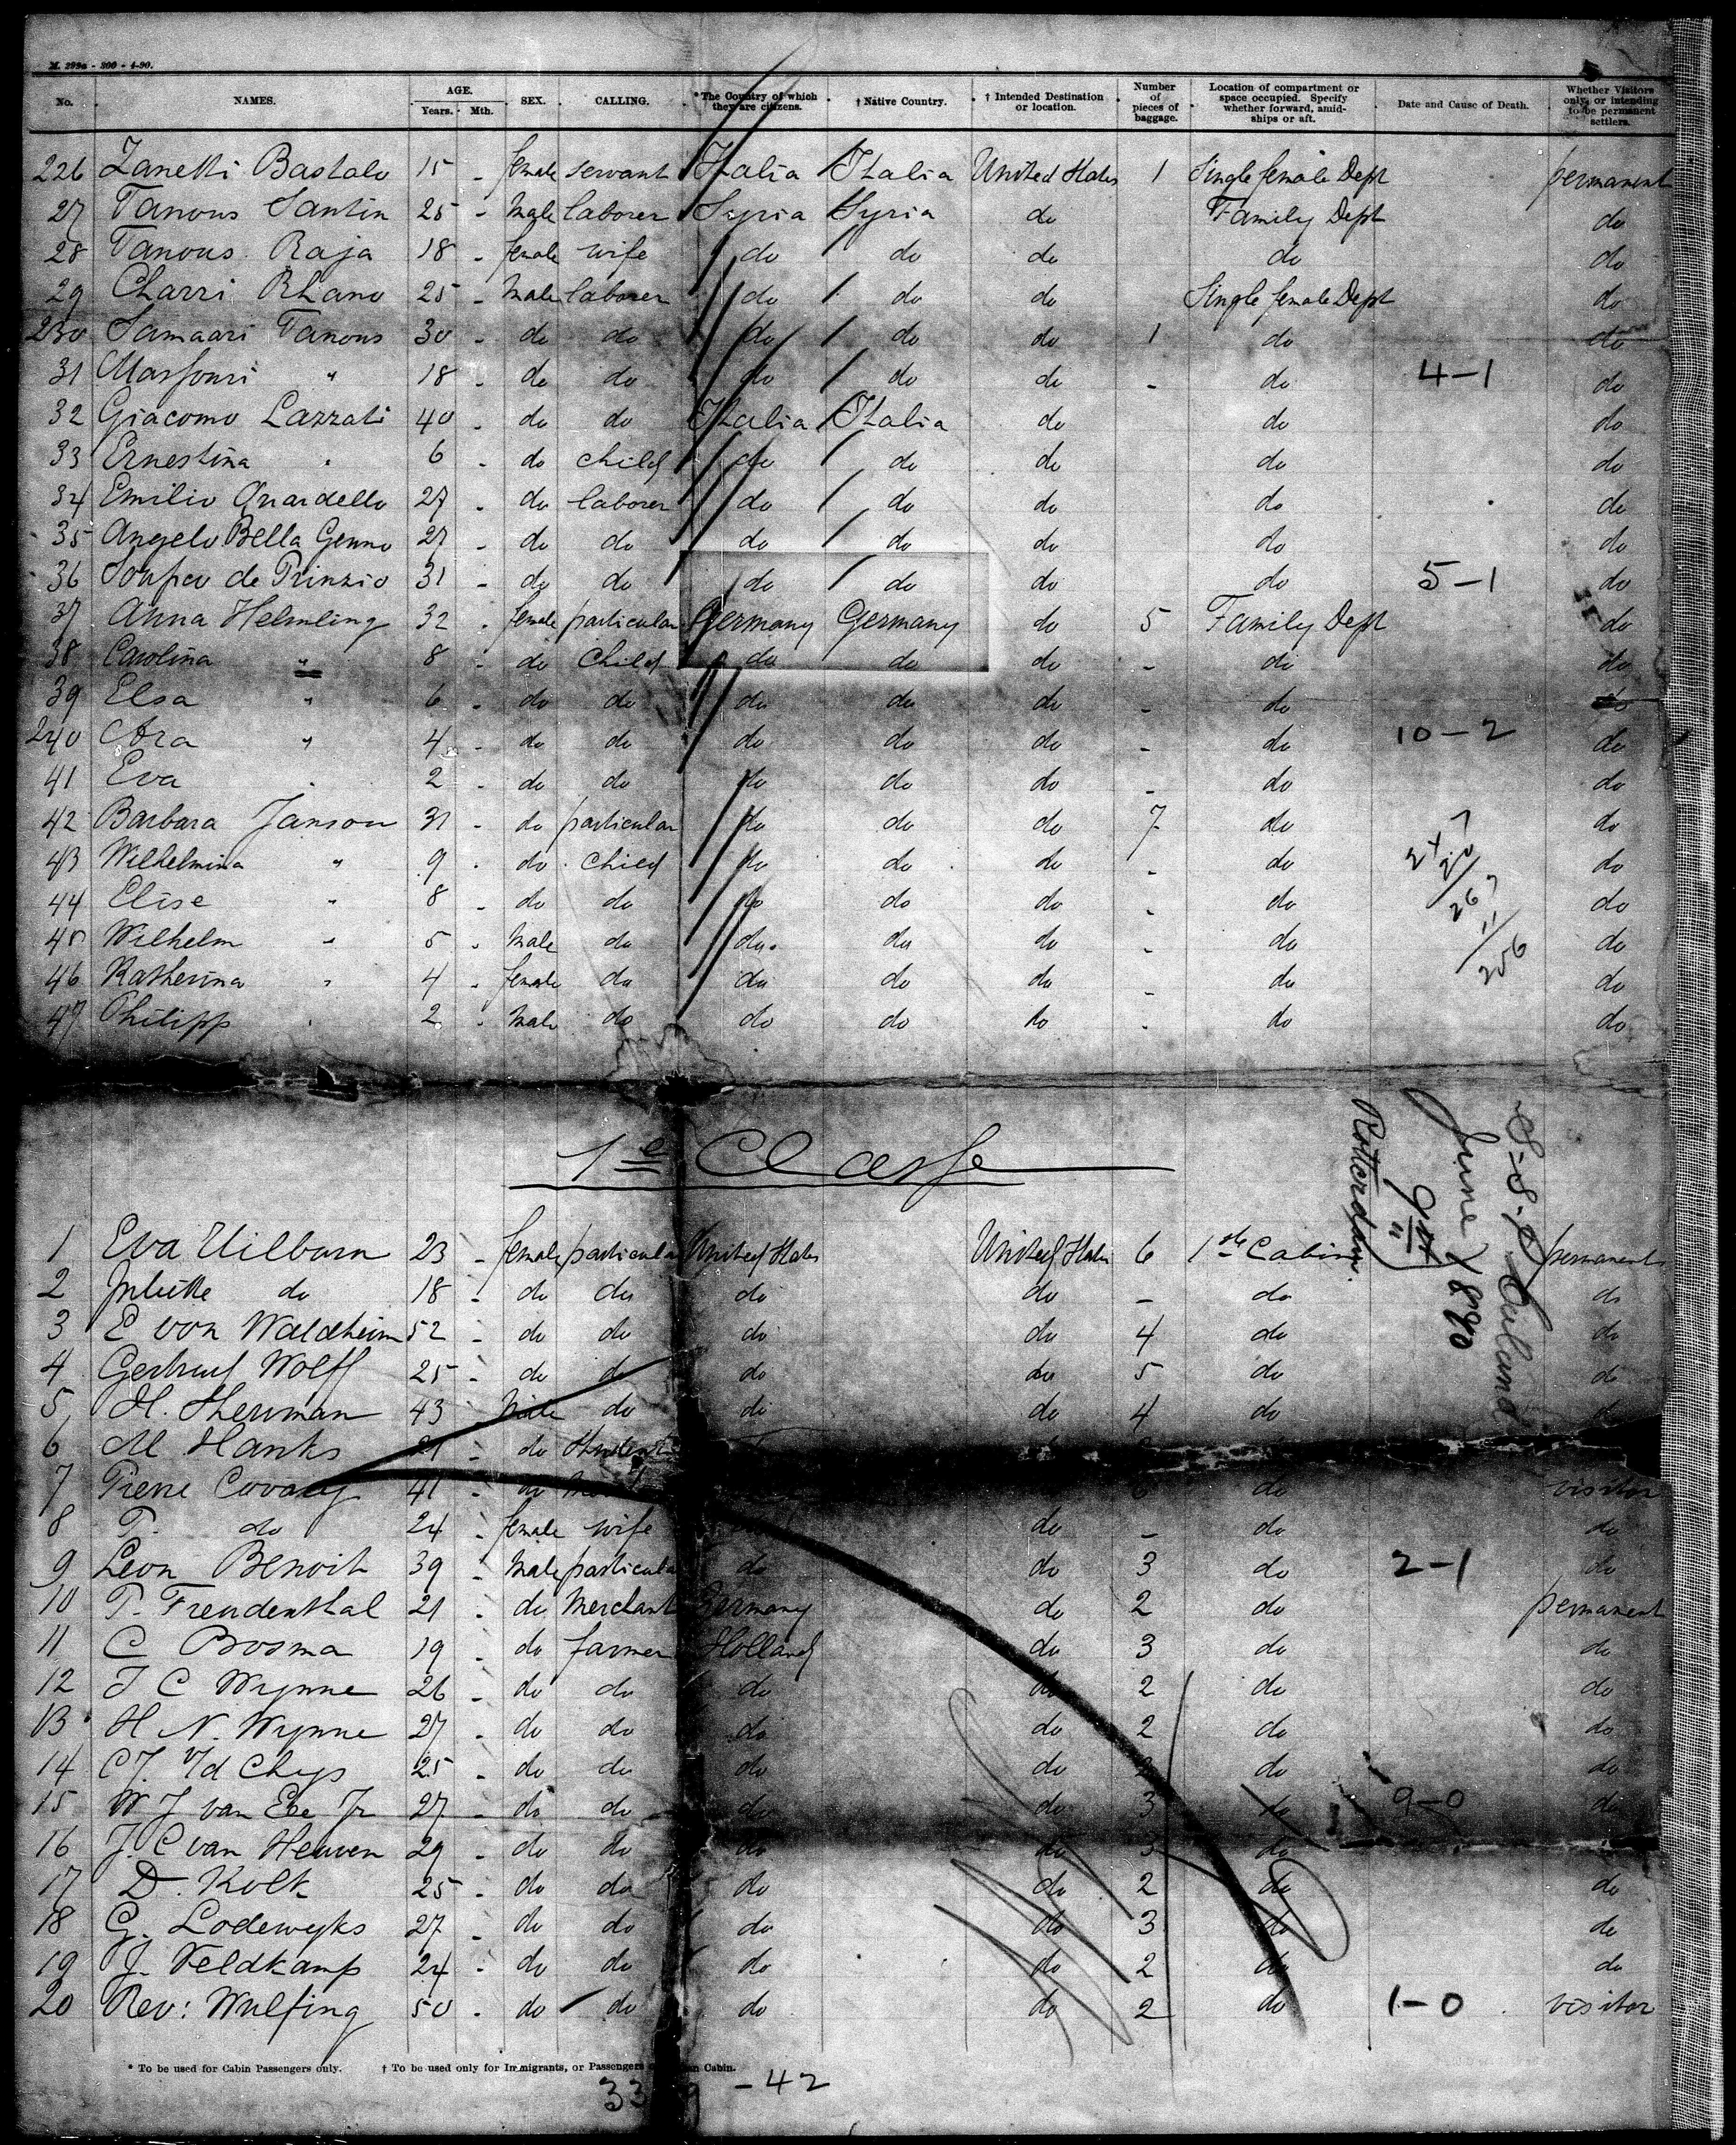 M. 299a - 300 - 4-90.
5
No. NAMES. AGE. Years. Mth. SEX. CALLING. *The Country of which they are citizens. † Native Country. † Intended Destination or location. Number of pieces of baggage. Location of compartment or space occupied. Specify whether forward, amidships or aft. Date and Cause of Death. Whether Visitors only, or intending to be permanent settlers.
226 Zanetti Bastalo 15 - female servant Italia Italia United States 1 Single female Dept permanent
27 Tanous Santin 25 - Male laborer Syria Syria do Family Dept do
28 Tanous Raja 18 - female wife do do do do do
29 Charri Rhano 25 - Male laborer do do do Single female Dept do
230 Samaari Tanous 30 - do do do do do 1 do do
31 Masfouri " 18 - do do do do do - do 4-1 do
32 Giacomo Lazzati 40 - do do Italia Italia do do do
33 Ernestina " 6 - do child do do do do do
34 Emilio Quardello 27 - do laborer do do do do do
35 Angelo Bella Genno 27 - do do do do do do do
36 de Prinzio 31 - do do do do do do 5-1 do
37 Anna Helmling 32 - female particular Germany Germany do 5 Family Dept do
38 Carolina " 8 - do Child do do do - do do
39 Elsa " 6 - do do do do do - do do
240 Cora " 4 - do do do do do - do 10-2 do
41 Eva " 2 - do do do do do - do do
42 Barbara Janson 31 - do particular do do do 7 do do
43 Wilhelmina " 9 - do child do do do - do do
44 Elise " 8 - do do do do do - do do
45 Wilhelm " 5 - Male do do do do - do do
46 Katherina " 4 - female do do do do - do do
47 Philipp " 2 - Male do do do do - do do
247
20
267
11
256
S.S. June 9 1890
Rotterdam.
1e Classe
1 Eva Uilburn 23 - female particular United States United States 6 1ste Cabin permanent
2 Juliette do 18 - do do do do - do do
3 E von Waldheim 52 - do do do do 4 do do
4 Gertrud Wolff 25 - do do do do 5 do do
5 H. Sherman 43 - Male do do do 4 do do
6 M Hanks 21 - do Student
7 Pierre 41 - do 6 do visitor
8 P. do 24 - female wife do - do do
9 Leon Benoit 39 - Male particular do do 3 do 2-1 do
10 P. Freudenthal 21 - do Merchant Germany do 2 do permanent
11 C Bosma 19 - do farmer Holland do 3 do do
12 J C Wynne 26 - do do do do 2 do do
13 H N. Wynne 27 - do do do do 2 do do
14 C J. v/d Chys 25 - do do do do 2 do do
15 W J van Ebe Jr 27 - do do do do 3 do 9-0 do
16 J. C van Heuven 29 - do do do do 3 do
17 D. Kolk 25 - do do do do 2 do do
18 G. Lodewyks 27 - do do do do 3 do do
19 J. Veldkamp 24 - do do do do 2 do do
20 Rev: Wulfing 50 - do do do do 2 do 1-0 visitor
* To be used for Cabin Passengers only. † To be used only for Immigrants, or Passengers Cabin.
33 9 - 42